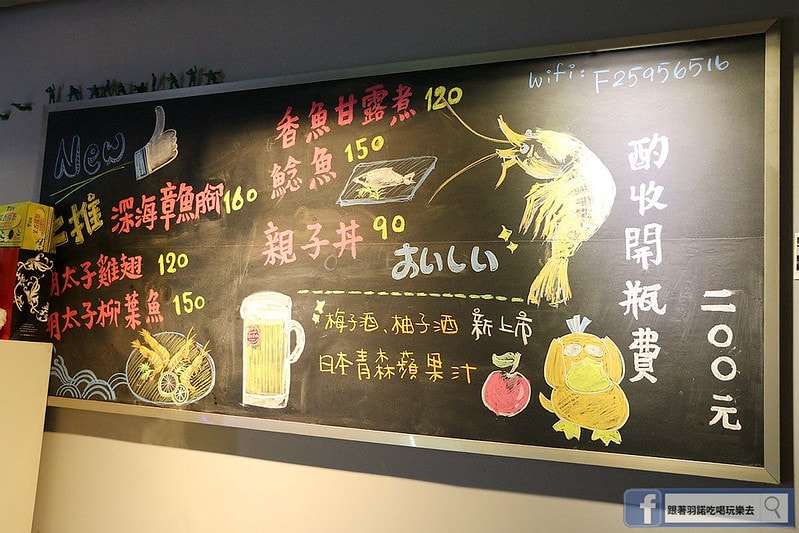 New
wifi: F25956516
主推
深海章魚腳 160
明太子雞翅 120
明太子柳葉魚 150
香魚甘露煮 120
鯰魚 150
親子丼 90
おいしい
梅子酒、柚子酒 新上市
日本青森蘋果汁
酌收開瓶費
二〇〇元
跟著羽諾吃喝玩樂去